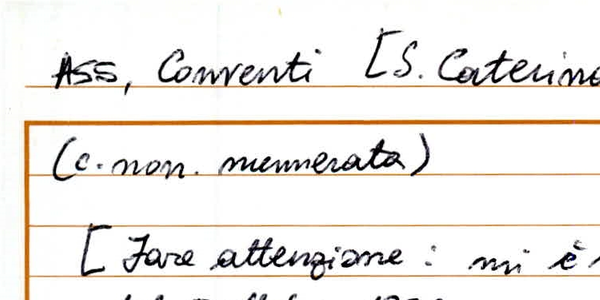 ASS, Conventi [S. Caterina
(c. non. numerata)
[Fare attenzione : mi è